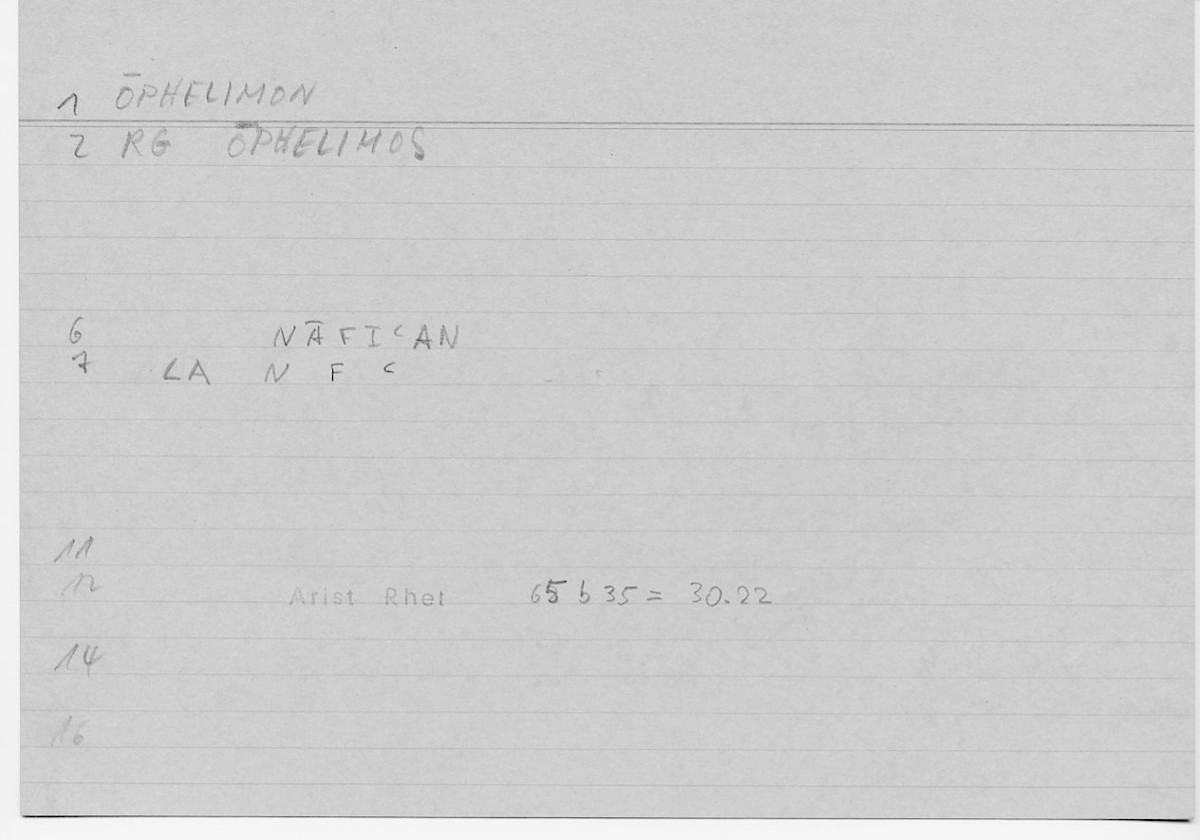 1 ŌPHELIMON
2 RG ŌPHELIMOS
6 NĀFIʿAN
7 LA N F ʿ
11
12 Arist Rhet 65 b 35 = 30.22
14
16